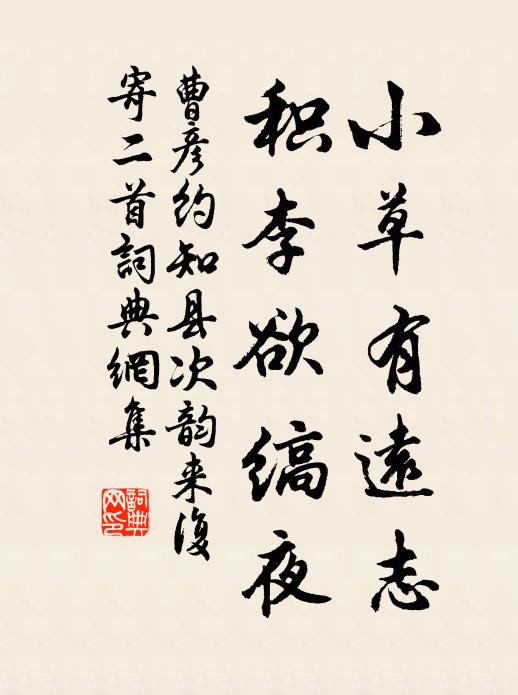 小草有遠志
积李欲缟夜
曹彦约知县次韵来復
寄二首詞典網集
詞典网印